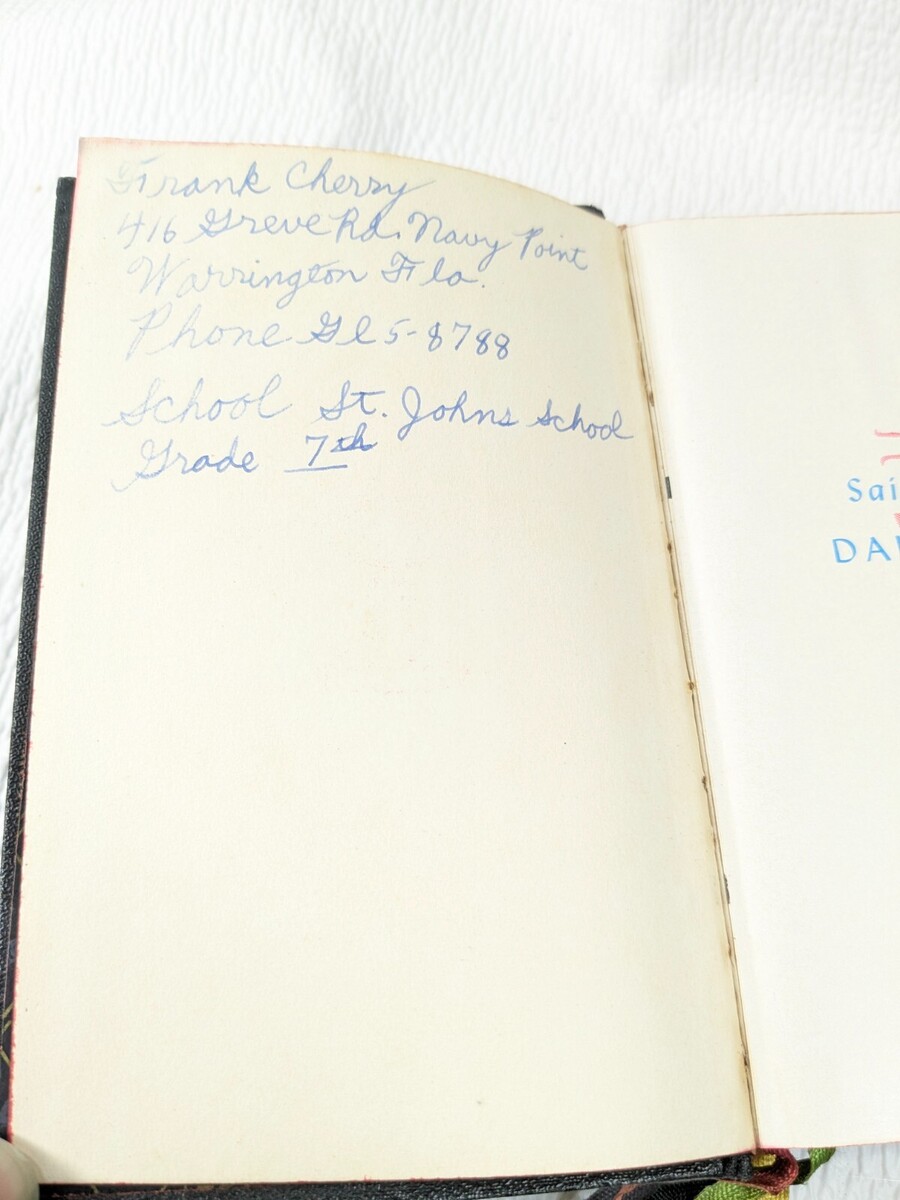 Frank Cherry
416 Greve Rd. Navy Point
Warrington Fla.
Phone Gl 5-8788
School St. Johns School
Grade 7th
Sai
DA